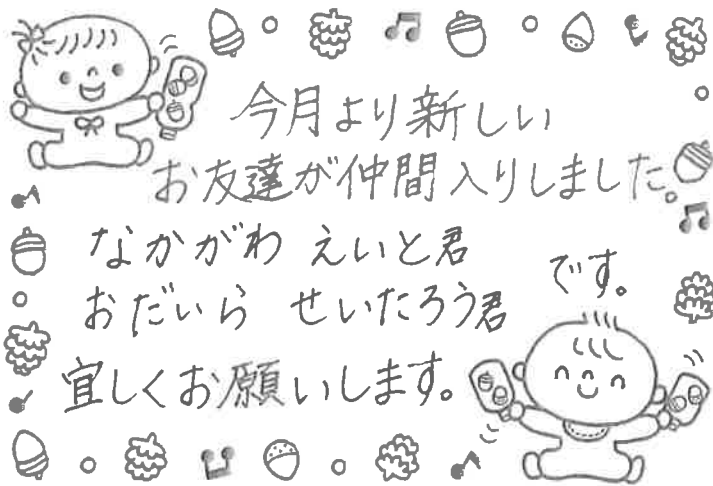 今月より新しい
お友達が仲間入りしました。
なかがわ えいと君
おだいら せいたろう君 です。
宜しくお願いします。